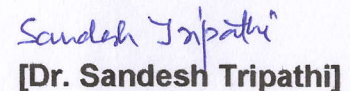 Sandesh Tripathi
[Dr. Sandesh Tripathi]